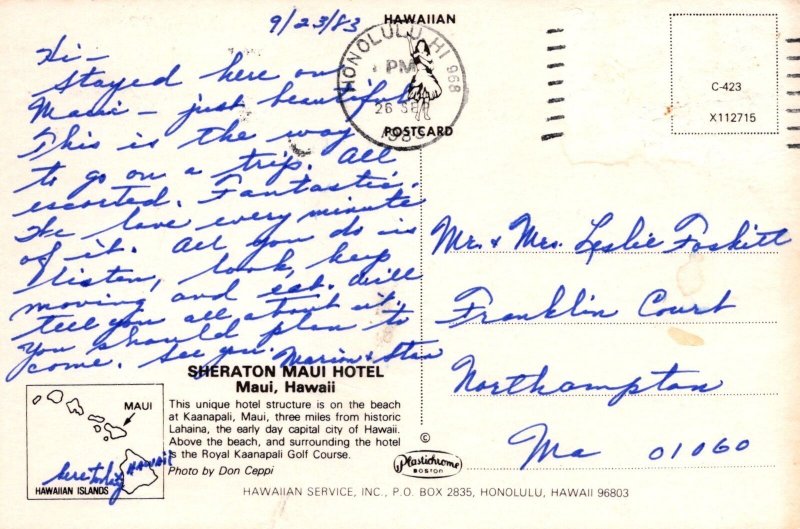 9/23/83
Hi -
Stayed here on
Maui - just beautiful.
This is the way
to go on a trip. All
escorted. Fantastic.
love every minute
of it. All you do is
listen, look, keep
moving and eat. Will
tell you all about it.
You should plan to
come. See you.
Marion & Stan
HAWAIIAN
POSTCARD
HONOLULU, HI 968
PM
26 SEP
1983
C-423
X112715
Mr. & Mrs. Leslie Foskitt
Franklin Court
Northampton
Ma 01060
SHERATON MAUI HOTEL
Maui, Hawaii
This unique hotel structure is on the beach
at Kaanapali, Maui, three miles from historic
Lahaina, the early day capital city of Hawaii.
Above the beach, and surrounding the hotel
is the Royal Kaanapali Golf Course.
Photo by Don Ceppi
MAUI
HAWAII
here today
HAWAIIAN ISLANDS
©
Plastichrome
BOSTON
HAWAIIAN SERVICE, INC., P.O. BOX 2835, HONOLULU, HAWAII 96803